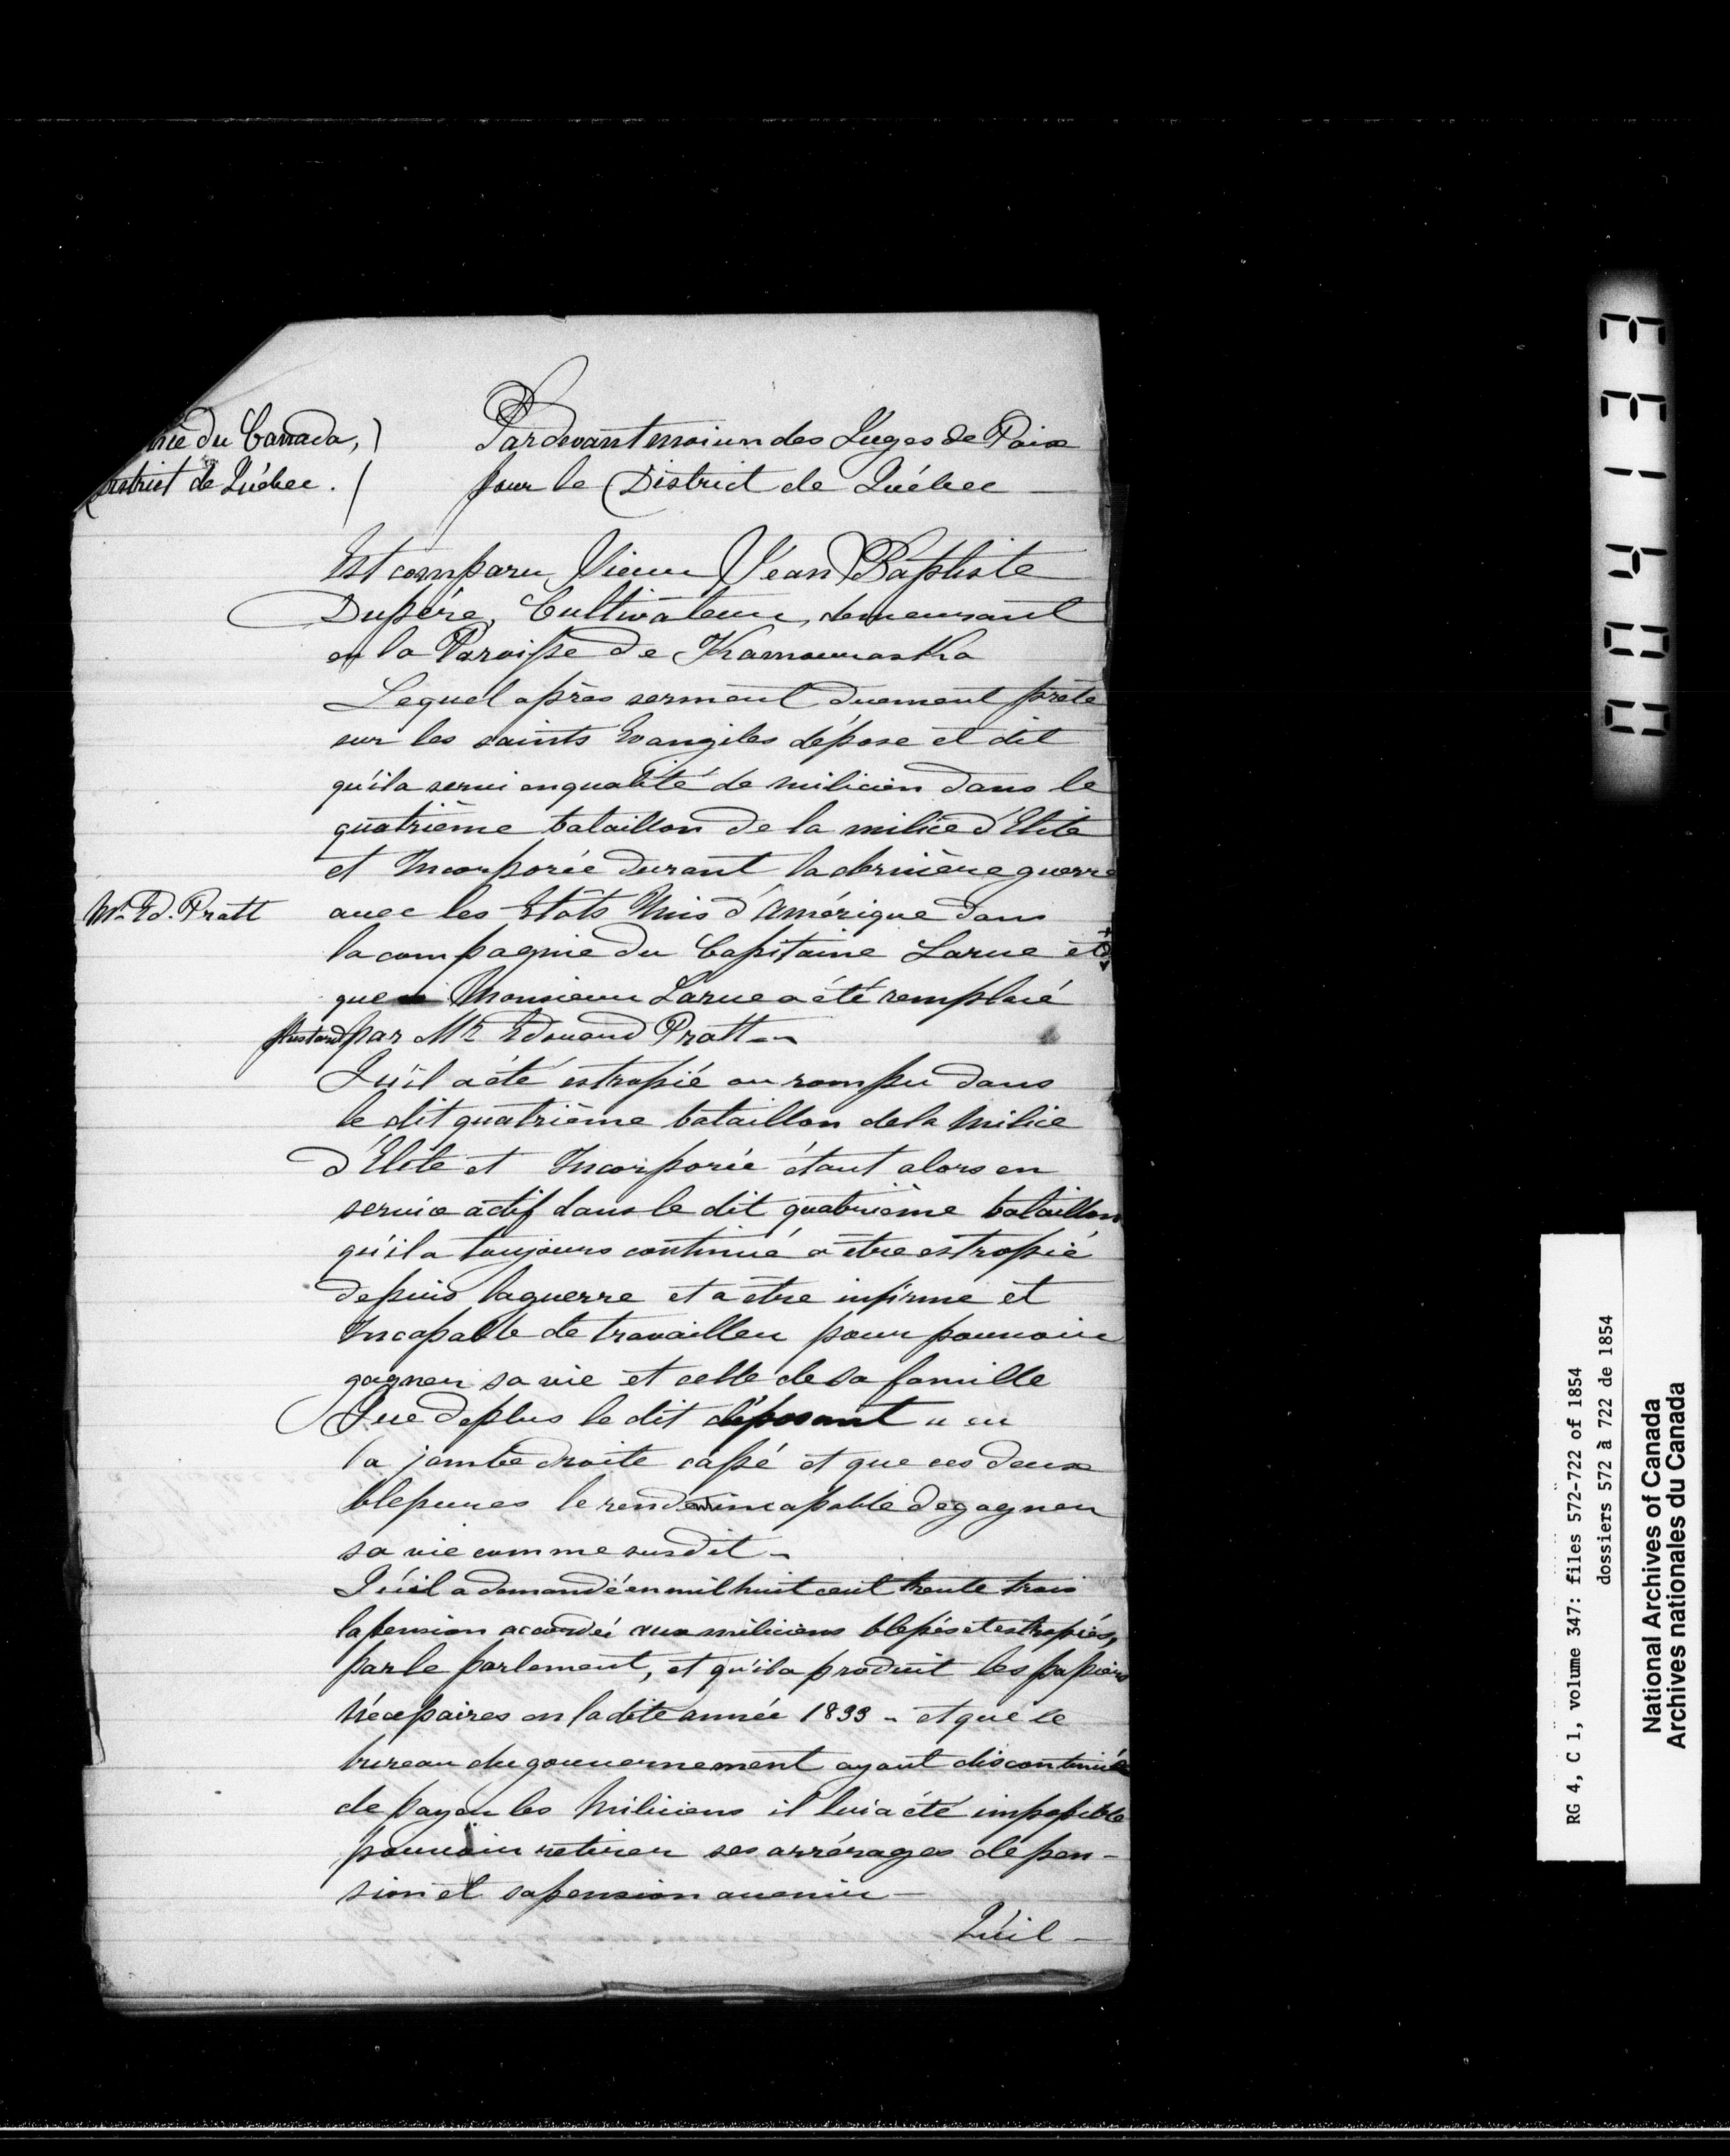 du Canada, )
District de Québec. /
Pardevant moi un des Juges de Paix
pour le District de Québec —
Est comparu Sieur Jean Baptiste
Dupére, Cultivateur, demeurant
en la Paroisse de Kamouraska
Lequel après serment duement prêté
sur les saints Evangiles dépose et dit
qu'il a servi en qualité de milicien dans le
quatrième bataillon de la milice d'Elite
et Incorporée durant la dernière guerre
Mr. Ed. Pratt
avec les Etats Unis d'Amérique dans
la compagnie du Capitaine Larue et
que Monsieur Larue a été remplacé
plustard par Mr Edouard Pratt —
Qu'il a été estropié ou rompu dans
le dit quatrième bataillon de la Milice
d'Elite et Incorporée étant alors en
service actif dans le dit quatrième bataillon
qu'il a toujours continué a être estropié
depuis la guerre et a être infirme et
Incapable de travailler pour pouvoir
gagner sa vie et celle de sa famille
Que de plus le dit déposant a eu
la jambe droite cassé et que ces deux
blessures le rend incapable de gagner
sa vie comme susdit —
Qu'il a demandé en mil huit cent trente trois
la pension accordéé aux miliciens blessés et estropiés,
par le parlement, et qu'il a produit les papiers
Nécessaires en la dite année 1833 - et que le
bureau du gouvernement ayant discontinué
de payer les Miliciens il lui a été impossible
pouvoir retirer ses arrérages de pen-
sion et sa pension avenir —
Qu'il —
RG 4, C 1, volume 347: files 572-722 of 1854
dossiers 572 à 722 de 1854
National Archives of Canada
Archives nationales du Canada